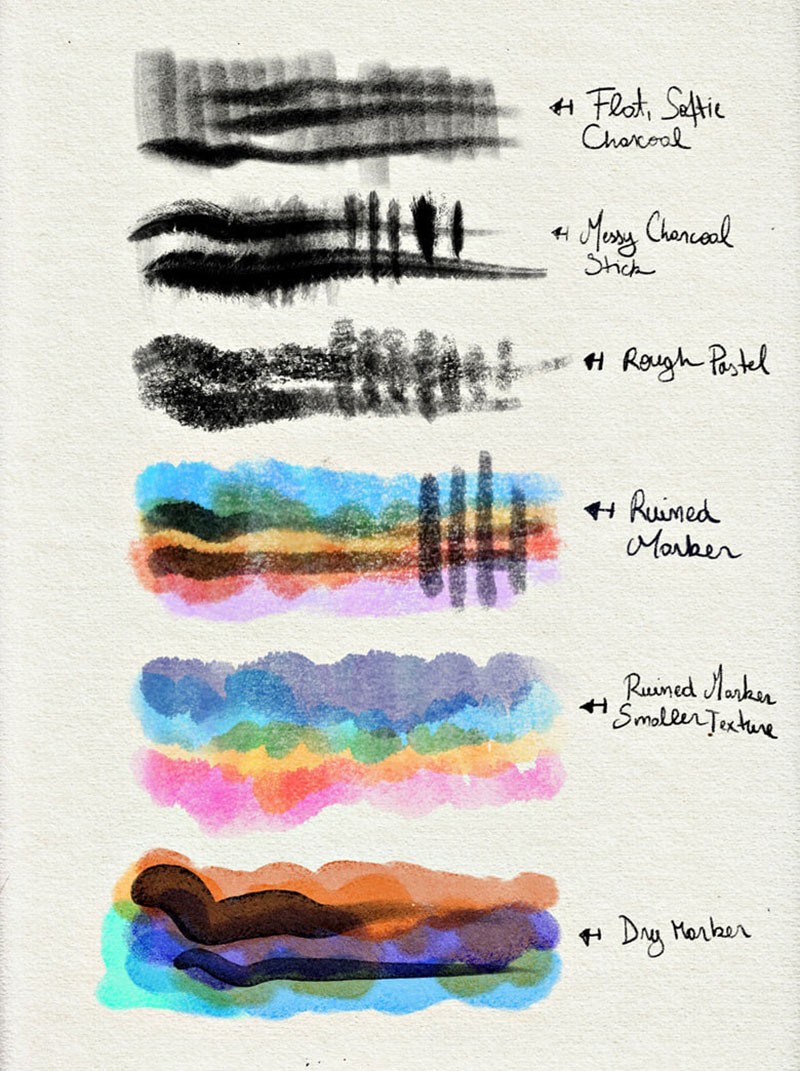 Flat, Softie
Charcoal
Messy Charcoal
Stick
Rough Pastel
Ruined
Marker
Ruined Marker
Smaller Texture
Dry Marker